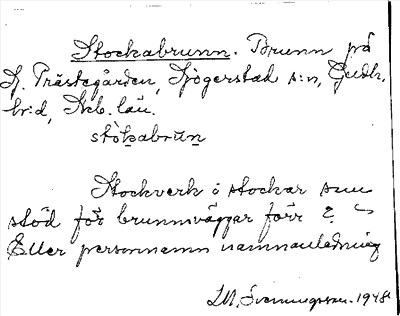 Stockabrunn. Brunn på
G. Prästegården, Sjögerstad s:n, Gudh.
hr:d, Skb. län.
stòkabrun
Stockverk i stockar som
stöd för brunnsväggar förr?
Eller personnamn namnanledning
Svenungsson. 1948